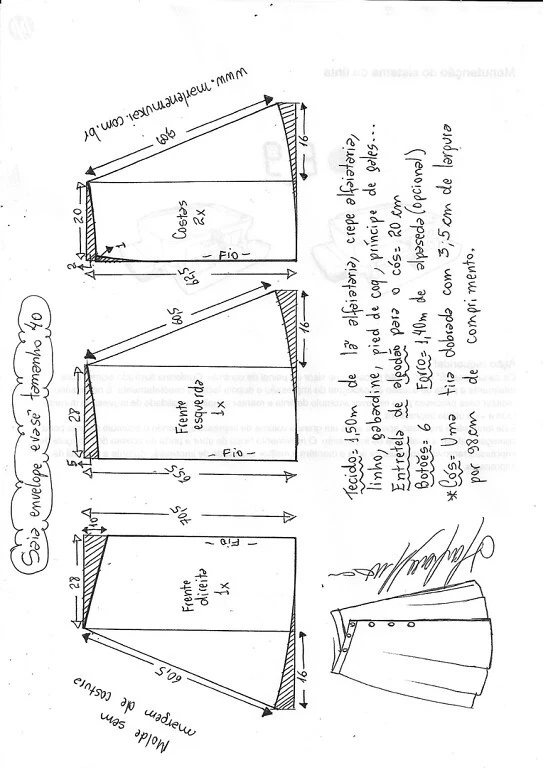 Saia envelope evasê tamanho 40
Molde sem
margem de costura
28
10
70,5
Frente
direita
1x
- Fio -
60,5
16
28
5
65,5
Frente
esquerda
1x
- Fio -
60,5
16
20
2
1
62,5
Costas
2x
- Fio -
60,5
16
www.marlenemukai.com.br
Tecido= 1,50m de lã alfaiataria, crepe alfaiataria,
linho, gabardine, pied de coq, príncipe de gales...
Entretela de algodão para o cós= 20 cm
Botões= 6 Forro= 1,40m de alpaseda (opcional)
*Cós= Uma tira dobrada com 3,5cm de largura
por 98cm de comprimento.